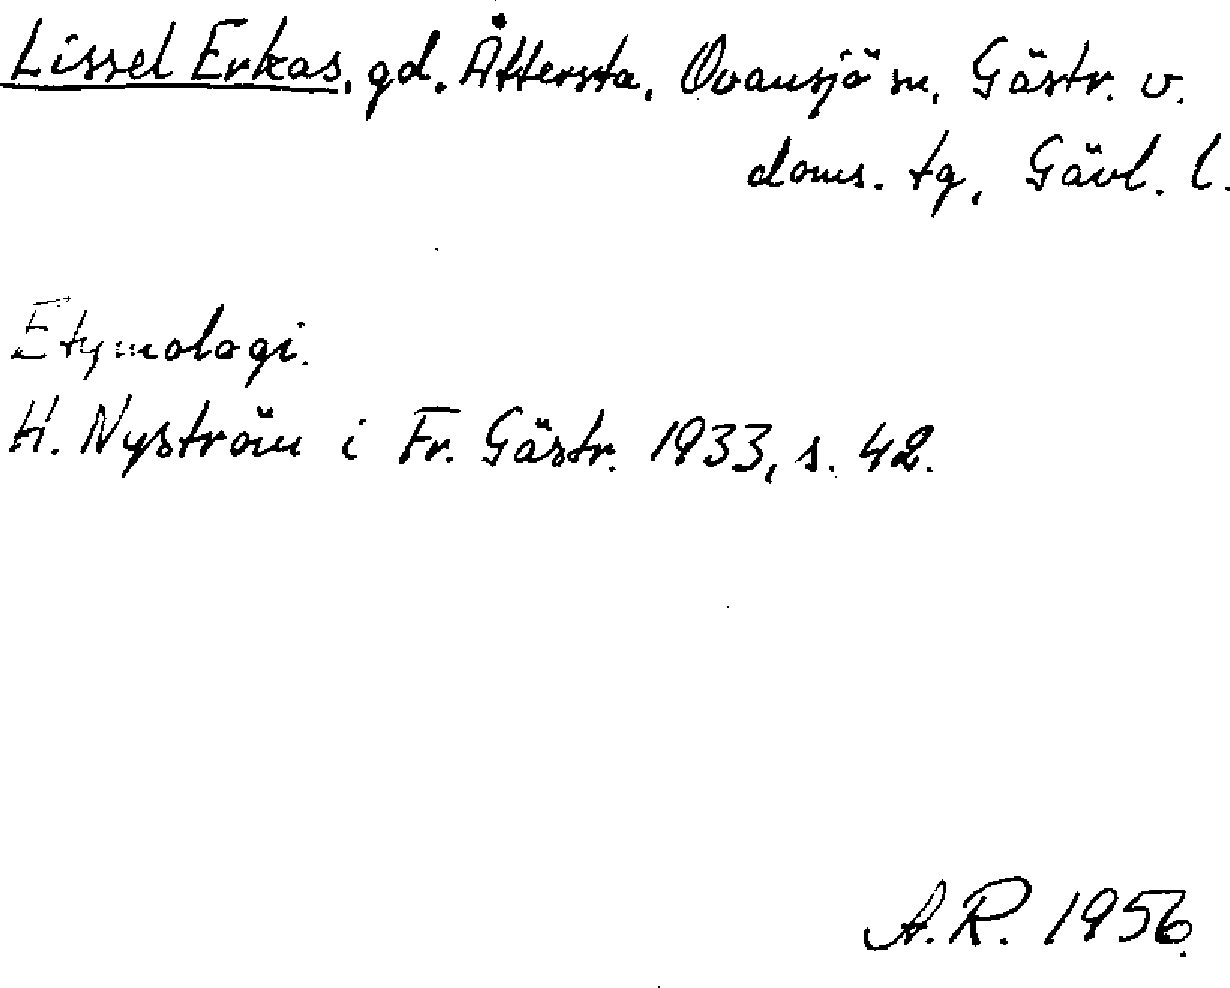 Lissel Erkas, gd. Åttersta, Ovansjö sn, Gästr. v.
doms. tg, Gävl. l.
Etymologi.
H. Nyström i Fr. Gästr. 1933, s. 42.
A.R. 1956.